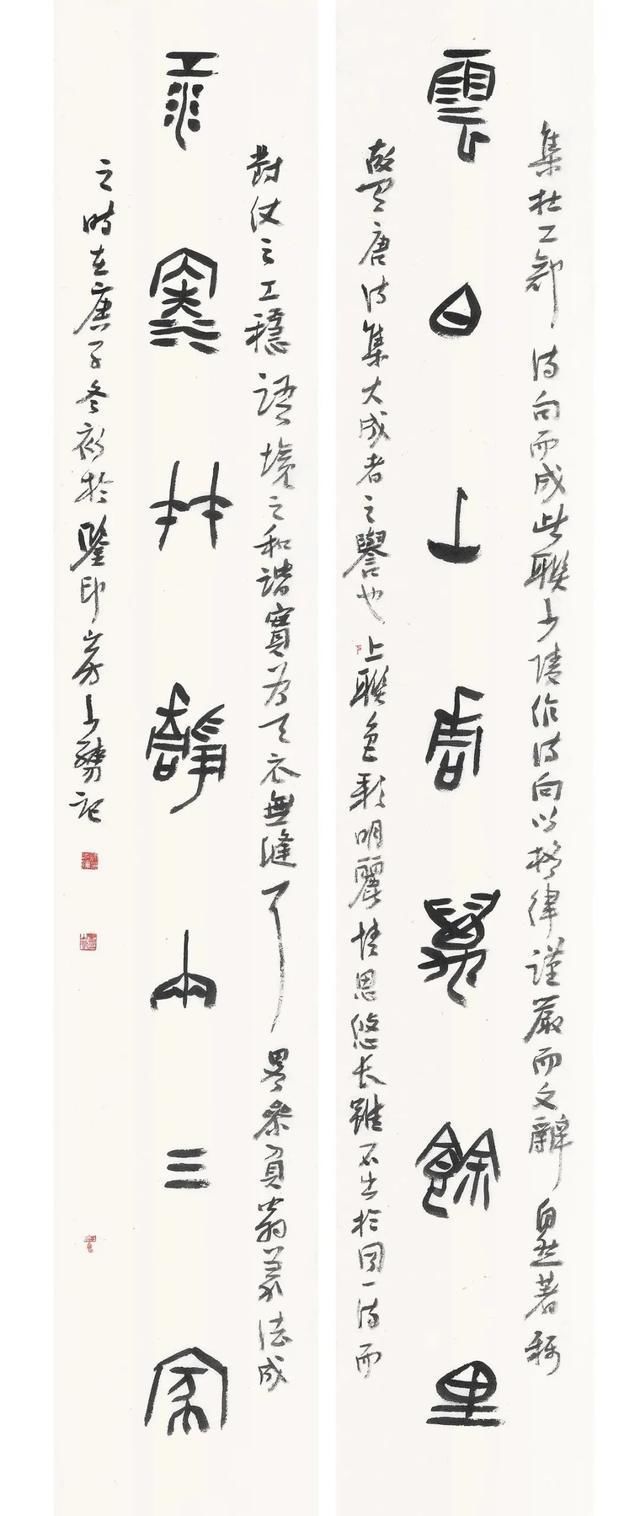 集杜工部詩句而成此聯少陵作詩向以格律謹嚴而文辭自然著稱
雲白山青萬餘里
故有唐詩集大成者之譽也上聯色彩明麗情思悠長雖不出於同一詩而
對仗之工穩語境之和諧實為天衣無縫了畧參翁篆法成
江深竹靜兩三家
之時在庚子冬初於鑒印山房少記